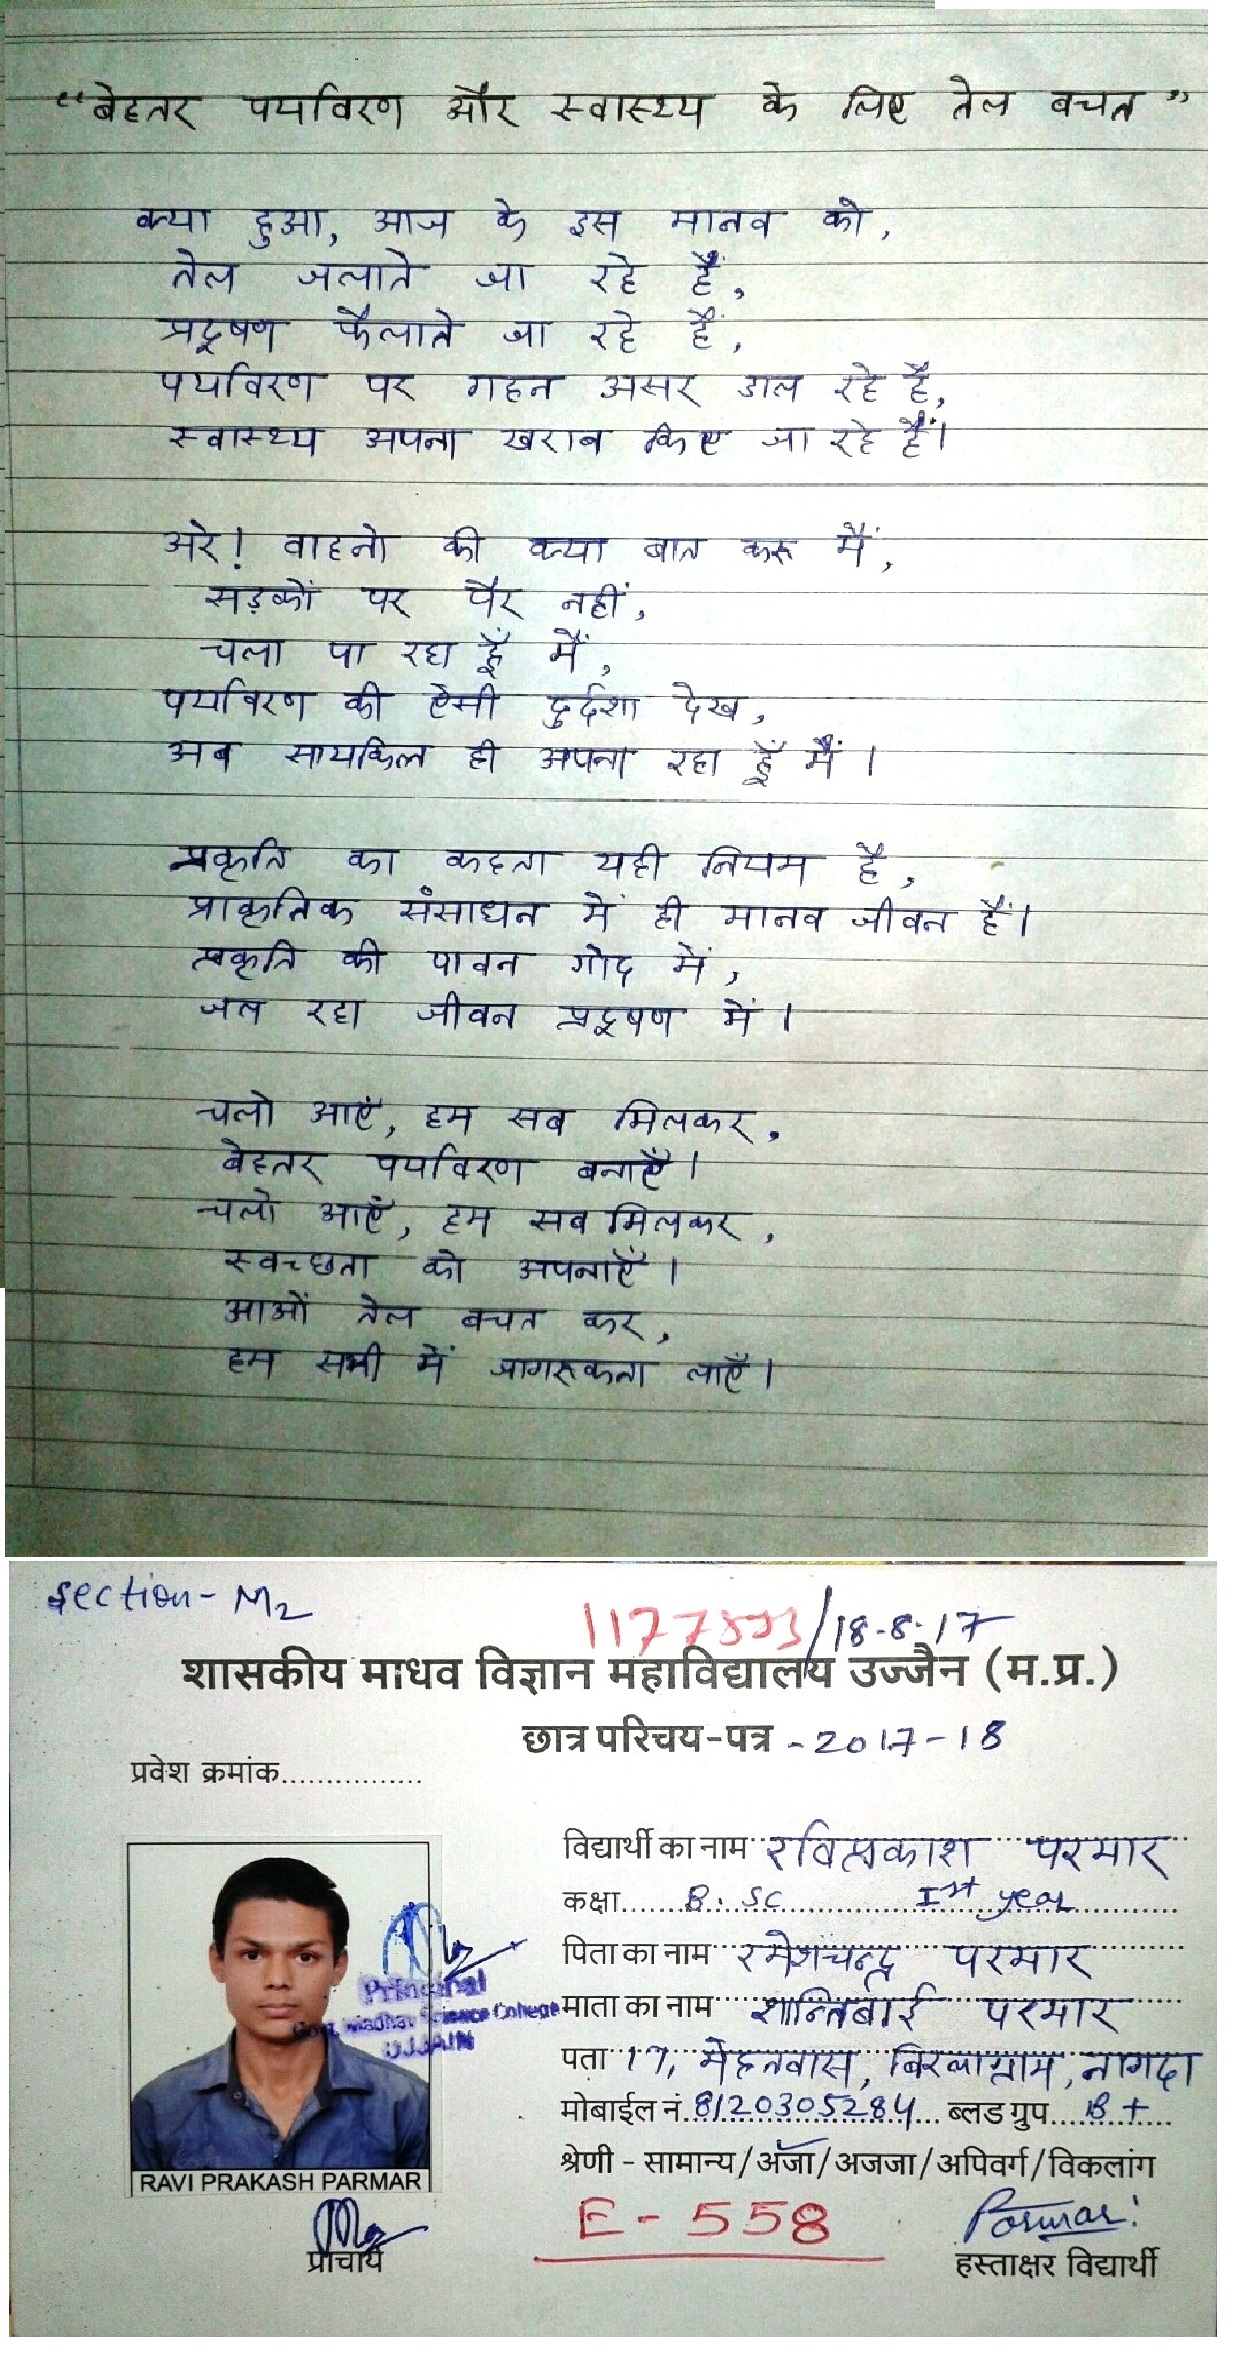 “बेहतर पर्यावरण और स्वास्थ्य के लिए तेल बचत”
क्या हुआ, आज के इस मानव को,
तेल जलाते जा रहे हैं,
प्रदूषण फैलाते जा रहे हैं,
पर्यावरण पर गहन असर डाल रहे है,
स्वास्थ्य अपना खराब किए जा रहे हैं।
अरे! वाहनो की क्या बात करू मैं,
सड़कों पर पैर नहीं,
चला पा रहा हूँ मैं,
पर्यावरण की ऐसी दुर्दशा देख,
अब सायकिल ही अपना रहा हूँ मैं।
प्रकृति का कहता यही नियम है,
प्राकृतिक संसाधन में ही मानव जीवन हैं।
प्रकृति की पावन गोद में,
जल रहा जीवन प्रदूषण में।
चलो आएं, हम सब मिलकर,
बेहतर पर्यावरण बनाएँ।
चलो आएं, हम सब मिलकर,
स्वच्छता को अपनाएँ।
आओं तेल बचत कर,
हम सभी में जागरूकता लाएँ।
Section - M2
/18-8-17
शासकीय माधव विज्ञान महाविद्यालय उज्जैन (म.प्र.)
छात्र परिचय-पत्र - 2017-18
प्रवेश क्रमांक................
विद्यार्थी का नाम रविप्रकाश परमार
कक्षा B. SC Ist year
पिता का नाम रमेशचन्द्र परमार
माता का नाम शान्तिबाई परमार
पता 17, मेहतवास, बिरलाग्राम, नागदा
मोबाईल नं. 8120305284 ब्लड ग्रुप B+
श्रेणी - सामान्य/अजा/अजजा/अपिवर्ग/विकलांग
Principal
Govt. Madhav Science College
UJJAIN
RAVI PRAKASH PARMAR
E-558
Parmar
प्राचार्य
हस्ताक्षर विद्यार्थी